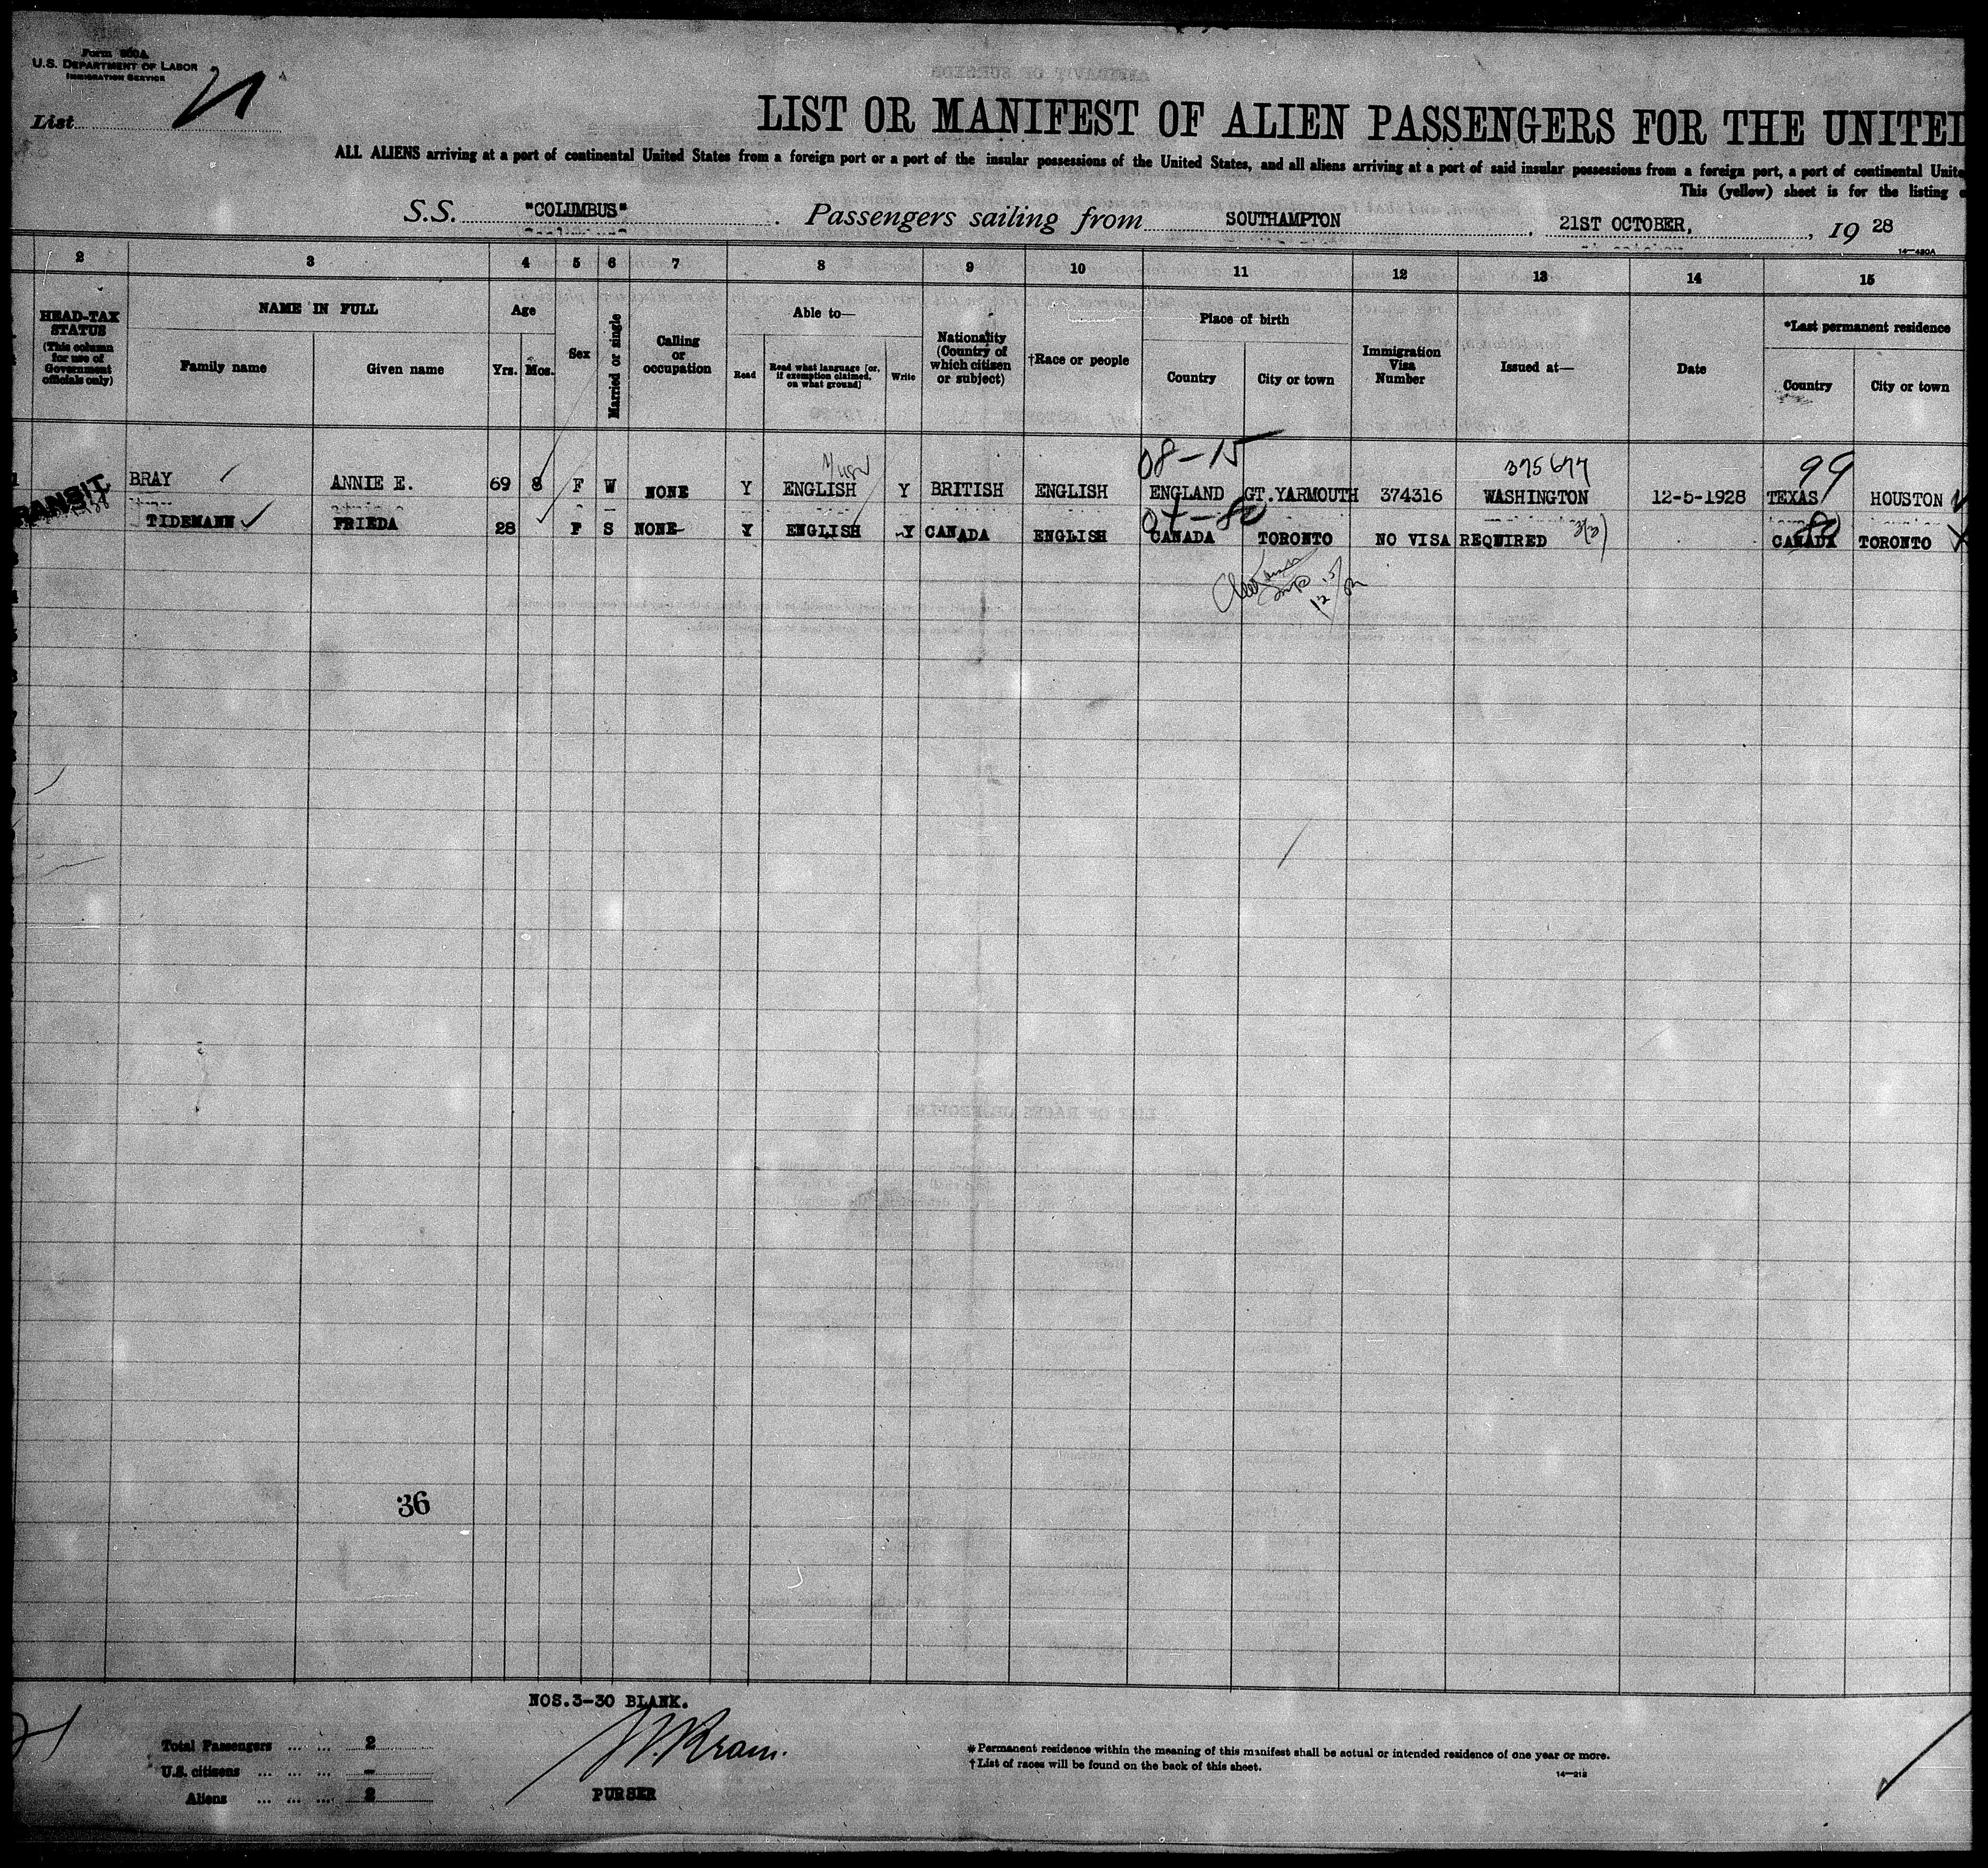 Form 500A
U.S. DEPARTMENT OF LABOR
IMMIGRATION SERVICE
List
LIST OR MANIFEST OF ALIEN PASSENGERS FOR THE UNITED
ALL ALIENS arriving at a port of continental United States from a foreign port or a port of the insular possessions of the United States, and all aliens arriving at a port of said insular possessions from a foreign port, a port of continental Unite
This (yellow) sheet is for the listing
S.S. "COLUMBUS" Passengers sailing from SOUTHAMPTON, 21ST OCTOBER, 1928
14-480A
2 3 4 5 6 7 8 9 10 11 12 13 14 15
HEAD-TAX STATUS (This column for use of Government officials only)
NAME IN FULL
Family name
Given name
Age
Yrs.
Mos.
Sex
Married or single
Calling or occupation
Able to—
Read
Read what language [or, if exemption claimed, on what ground]
Write
Nationality (Country of which citizen or subject)
†Race or people
Place of birth
Country
City or town
Immigration Visa Number
Issued at—
Date
*Last permanent residence
Country
City or town
08-15 375677 99
1 BRAY ANNIE E. 69 8 F W NONE Y ENGLISH Y BRITISH ENGLISH ENGLAND GT.YARMOUTH 374316 WASHINGTON 12-5-1928 TEXAS HOUSTON
RANSIT TIDEMANN FRIEDA 28 F S NONE Y ENGLISH Y CANADA ENGLISH CANADA TORONTO NO VISA REQUIRED CANADA TORONTO
36
NOS.3-30 BLANK.
Total Passengers ... ... 2
U.S. citizens ... ... ... -
Aliens ... ... ... 2
PURSER
* Permanent residence within the meaning of this manifest shall be actual or intended residence of one year or more.
† List of races will be found on the back of this sheet.
14-218